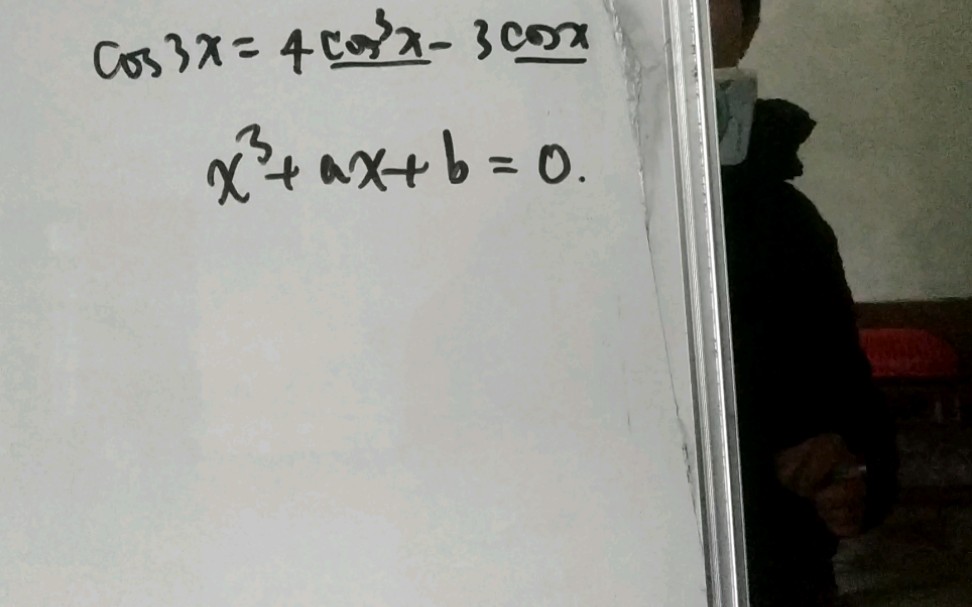 cos 3x = 4 cos³x - 3 cosx
x³ + ax + b = 0.